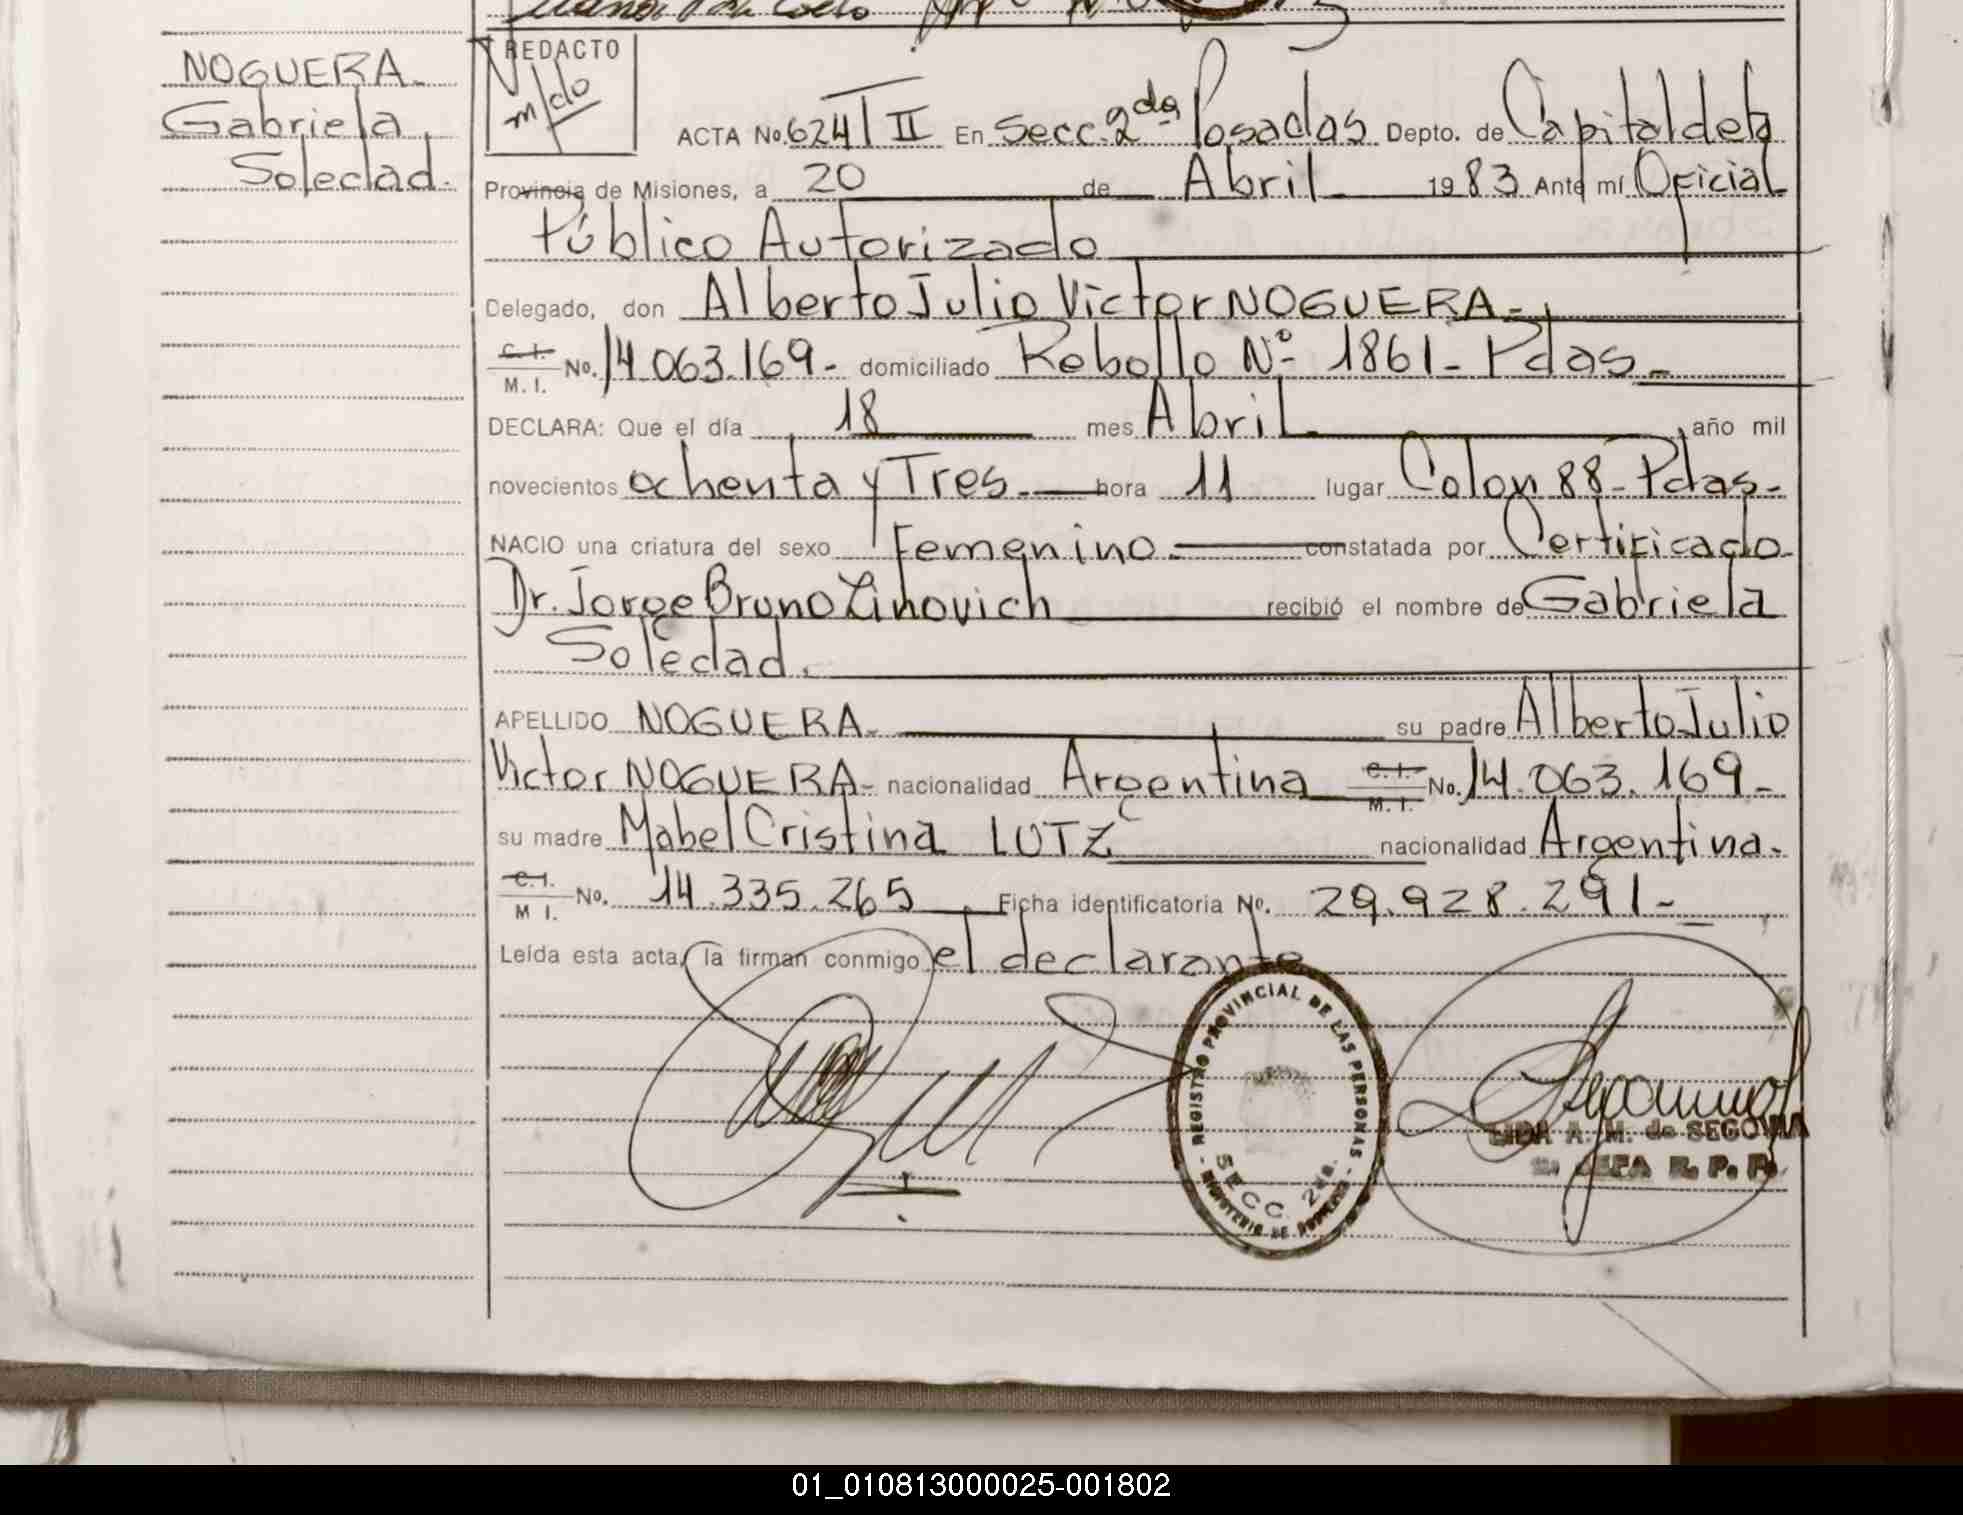 NOGUERA.
Gabriela
Soledad.
REDACTO
ACTA No. 624 T II En Secc. 2da Posadas Depto. de Capital de la
Provincia de Misiones, a 20 de Abril 1983 Ante mí Oficial
Público Autorizado
Delegado, don Alberto Julio Victor NOGUERA.-
C. I.
M. I. No. 14.063.169- domiciliado Rebollo Nº 1861- Pdas-
DECLARA: Que el día 18 mes Abril , año mil
novecientos ochenta y Tres.- hora 11 lugar Colon 88- Pdas-
NACIO una criatura del sexo Femenino.- constatada por Certificado
Dr. Jorge Bruno Zinovich recibió el nombre de Gabriela
Soledad.
APELLIDO NOGUERA.- su padre Alberto Julio
Victor NOGUERA- nacionalidad Argentina C. I.
M. I. No. 14.063.169-
su madre Mabel Cristina LUTZ nacionalidad Argentina.
C. I.
M I. No. 14.335.265 Ficha identificatoria No. 29.928.291-
Leída esta acta, la firman conmigo el declarante
REGISTRO PROVINCIAL DE LAS PERSONAS
SECC. 2da.
MINISTERIO DE GOBIERNO
LIDA A. M. de SEGOVIA
JEFA R. P. P.
01_010813000025-001802